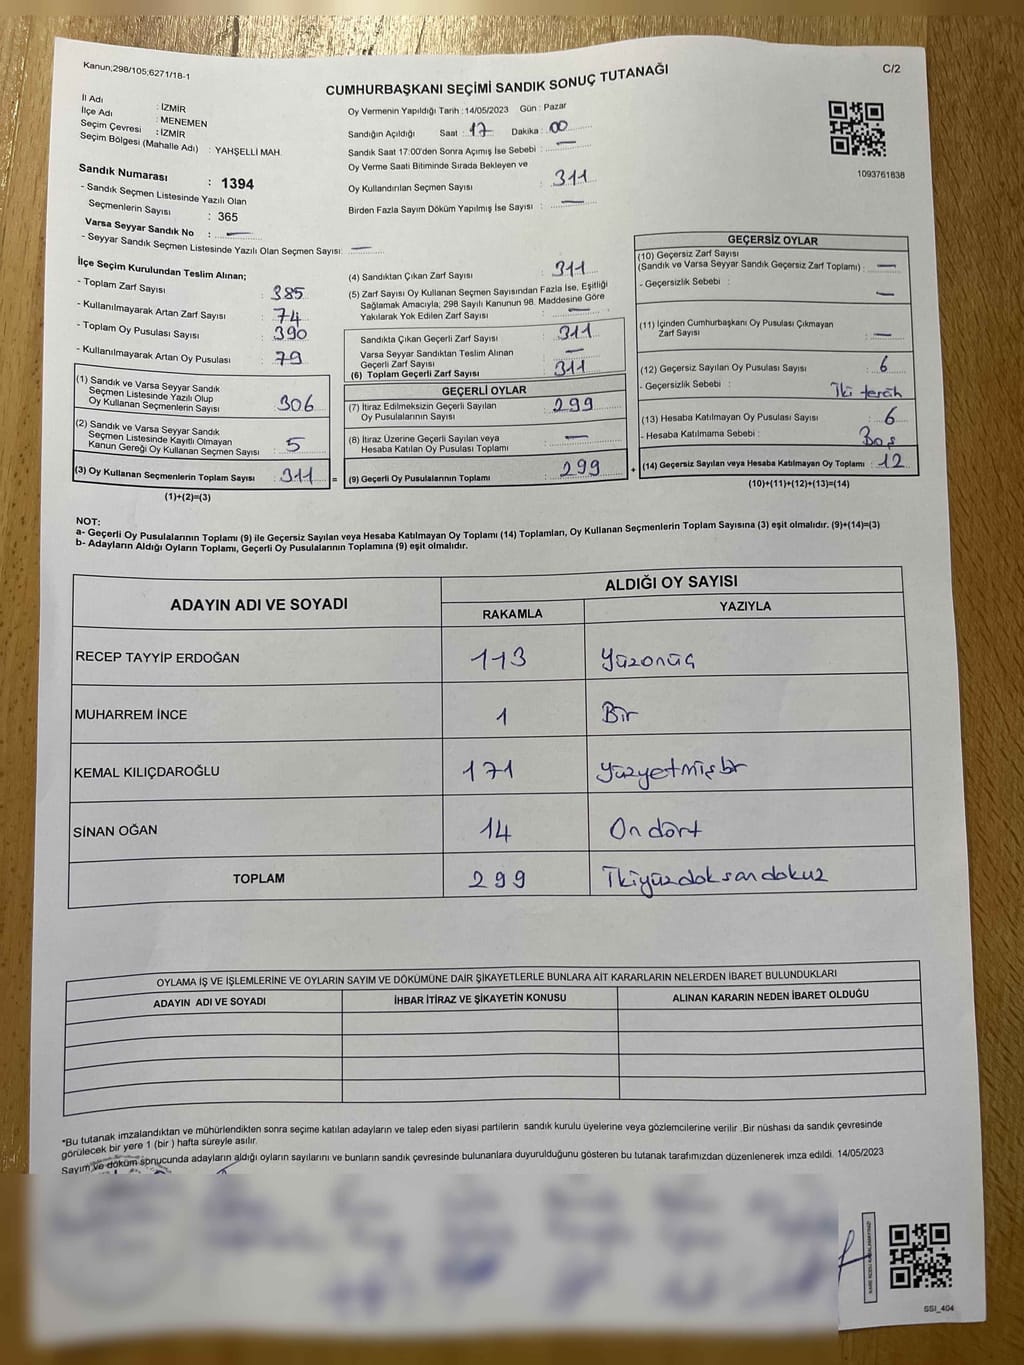 Kanun;298/105;6271/18-1
CUMHURBAŞKANI SEÇİMİ SANDIK SONUÇ TUTANAĞI
C/2
İl Adı : İZMİR
İlçe Adı : MENEMEN
Seçim Çevresi : İZMİR
Seçim Bölgesi (Mahalle Adı) : YAHŞELLİ MAH.
Sandık Numarası : 1394
- Sandık Seçmen Listesinde Yazılı Olan
Seçmenlerin Sayısı : 365
Varsa Seyyar Sandık No : —
- Seyyar Sandık Seçmen Listesinde Yazılı Olan Seçmen Sayısı: —
Oy Vermenin Yapıldığı Tarih :14/05/2023 Gün : Pazar
Sandığın Açıldığı Saat : 17 Dakika : 00
Sandık Saat 17:00'den Sonra Açımış İse Sebebi : —
Oy Verme Saati Bitiminde Sırada Bekleyen ve
Oy Kullandırılan Seçmen Sayısı : 311
Birden Fazla Sayım Döküm Yapılmış İse Sayısı : —
1093761838
İlçe Seçim Kurulundan Teslim Alınan;
- Toplam Zarf Sayısı : 385
- Kullanılmayarak Artan Zarf Sayısı : 74
- Toplam Oy Pusulası Sayısı : 390
- Kullanılmayarak Artan Oy Pusulası : 79
(1) Sandık ve Varsa Seyyar Sandık
Seçmen Listesinde Yazılı Olup
Oy Kullanan Seçmenlerin Sayısı : 306
(2) Sandık ve Varsa Seyyar Sandık
Seçmen Listesinde Kayıtlı Olmayan
Kanun Gereği Oy Kullanan Seçmen Sayısı : 5
(3) Oy Kullanan Seçmenlerin Toplam Sayısı : 311
(1)+(2)=(3)
(4) Sandıktan Çıkan Zarf Sayısı : 311
(5) Zarf Sayısı Oy Kullanan Seçmen Sayısından Fazla İse, Eşitliği
Sağlamak Amacıyla; 298 Sayılı Kanunun 98. Maddesine Göre
Yakılarak Yok Edilen Zarf Sayısı : —
Sandıkta Çıkan Geçerli Zarf Sayısı : 311
Varsa Seyyar Sandıktan Teslim Alınan
Geçerli Zarf Sayısı : —
(6) Toplam Geçerli Zarf Sayısı : 311
GEÇERLİ OYLAR
(7) İtiraz Edilmeksizin Geçerli Sayılan
Oy Pusulalarının Sayısı : 299
(8) İtiraz Üzerine Geçerli Sayılan veya
Hesaba Katılan Oy Pusulası Toplamı : —
= (9) Geçerli Oy Pusulalarının Toplamı : 299 +
GEÇERSİZ OYLAR
(10) Geçersiz Zarf Sayısı
(Sandık ve Varsa Seyyar Sandık Geçersiz Zarf Toplamı) : —
- Geçersizlik Sebebi : —
(11) İçinden Cumhurbaşkanı Oy Pusulası Çıkmayan
Zarf Sayısı : —
(12) Geçersiz Sayılan Oy Pusulası Sayısı : 6
- Geçersizlik Sebebi : İki tercih
(13) Hesaba Katılmayan Oy Pusulası Sayısı : 6
- Hesaba Katılmama Sebebi : Boş
(14) Geçersiz Sayılan veya Hesaba Katılmayan Oy Toplamı : 12
(10)+(11)+(12)+(13)=(14)
NOT:
a- Geçerli Oy Pusulalarının Toplamı (9) ile Geçersiz Sayılan veya Hesaba Katılmayan Oy Toplamı (14) Toplamları, Oy Kullanan Seçmenlerin Toplam Sayısına (3) eşit olmalıdır. (9)+(14)=(3)
b- Adayların Aldığı Oyların Toplamı, Geçerli Oy Pusulalarının Toplamına (9) eşit olmalıdır.
ADAYIN ADI VE SOYADI
ALDIĞI OY SAYISI
RAKAMLA YAZIYLA
RECEP TAYYİP ERDOĞAN 113 Yüzonüç
MUHARREM İNCE 1 Bir
KEMAL KILIÇDAROĞLU 171 Yüzyetmişbr
SİNAN OĞAN 14 On dört
TOPLAM 299 İkiyüzdoksandokuz
OYLAMA İŞ VE İŞLEMLERİNE VE OYLARIN SAYIM VE DÖKÜMÜNE DAİR ŞİKAYETLERLE BUNLARA AİT KARARLARIN NELERDEN İBARET BULUNDUKLARI
ADAYIN ADI VE SOYADI İHBAR İTİRAZ VE ŞİKAYETİN KONUSU ALINAN KARARIN NEDEN İBARET OLDUĞU
*Bu tutanak imzalandıktan ve mühürlendikten sonra seçime katılan adayların ve talep eden siyasi partilerin sandık kurulu üyelerine veya gözlemcilerine verilir .Bir nüshası da sandık çevresinde
görülecek bir yere 1 (bir ) hafta süreyle asılır.
Sayım ve döküm sonucunda adayların aldığı oyların sayılarını ve bunların sandık çevresinde bulunanlara duyurulduğunu gösteren bu tutanak tarafımızdan düzenlenerek imza edildi. 14/05/2023
SSI_404